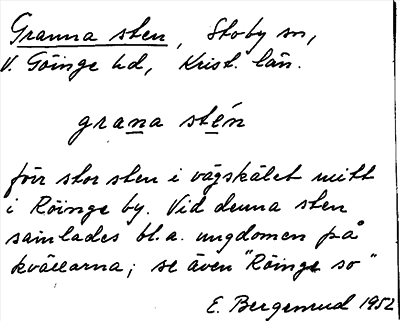 Granna sten, Stoby sn,
V. Göinge hd, Krist. län.
grana stén
förr stor sten i vägskälet mitt
i Röinge by. Vid denna sten
samlades bl.a. ungdomen på
kvällarna; se även "Röinge so"
E. Bergemud 1952